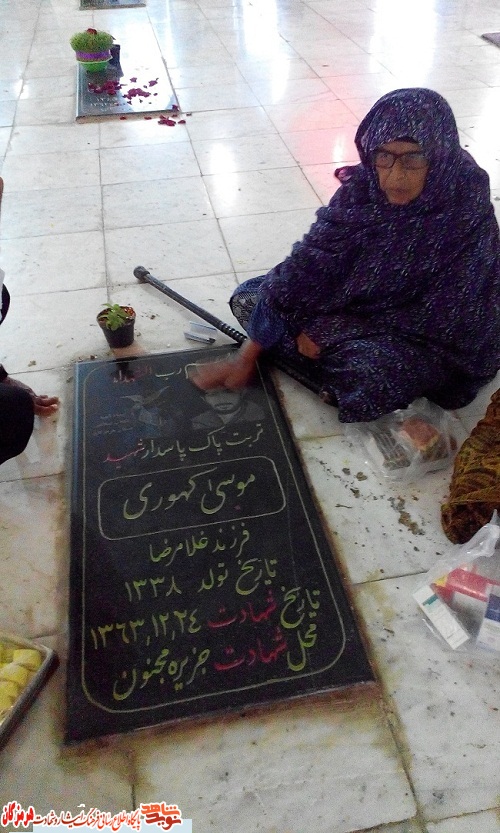 رب الشهداء
تربت پاک پاسدار شهید
موسی کهوری
فرزند غلامرضا
تاریخ تولد ۱۳۳۸
تاریخ شهادت ۱۳۶۳,۱۲,۲۴
محل شهادت جزیره مجنون
نوید شاهد
پایگاه اطلاع رسانی فرهنگ ایثار و شهادت هرمزگان